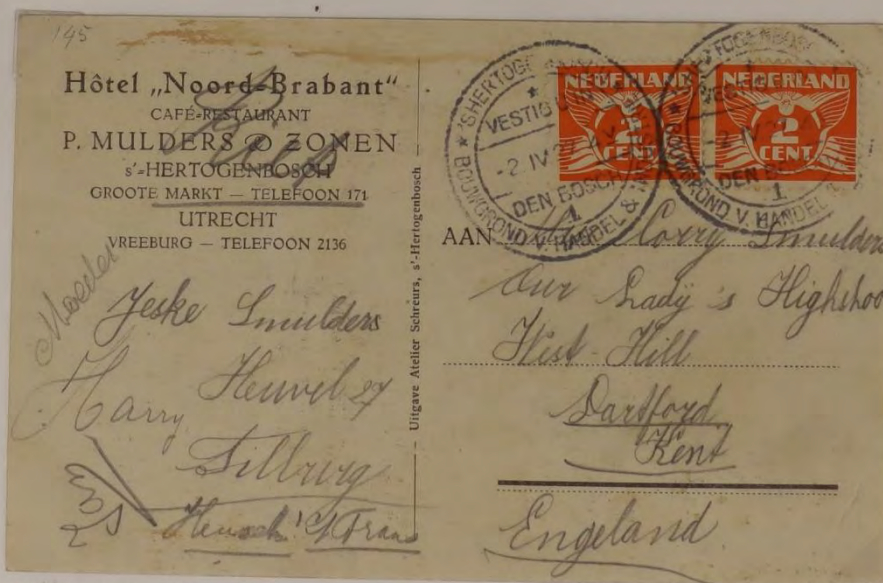 145
Hôtel „Noord-Brabant“
CAFÉ-RESTAURANT
P. MULDERS & ZONEN
s'=HERTOGENBOSCH
GROOTE MARKT — TELEFOON 171
UTRECHT
VREEBURG — TELEFOON 2136
Moeder
Jeske Smulders
Heuvel 27
Harry
Tilburg
Frans
Uitgave Atelier Schreurs, s'-Hertogenbosch
NEDERLAND
2
CENT
NEDERLAND
2
CENT
DEN BOSCH
1
BOUWGROND V. HANDEL &
DEN BOSCH
1
BOUWGROND V. HANDEL
AAN Corry Smulders
Our Lady's Highshool
West-Hill
Dartford
Kent
Engeland.